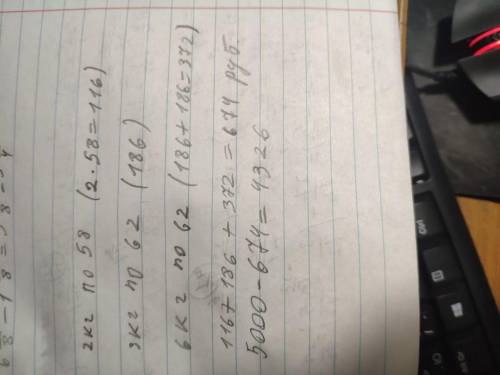 2кг по 58 (2·58=116)
3кг по 62 (186)
6кг по 62 (186+186=372)
116+186+372=674 руб
5000-674=4326